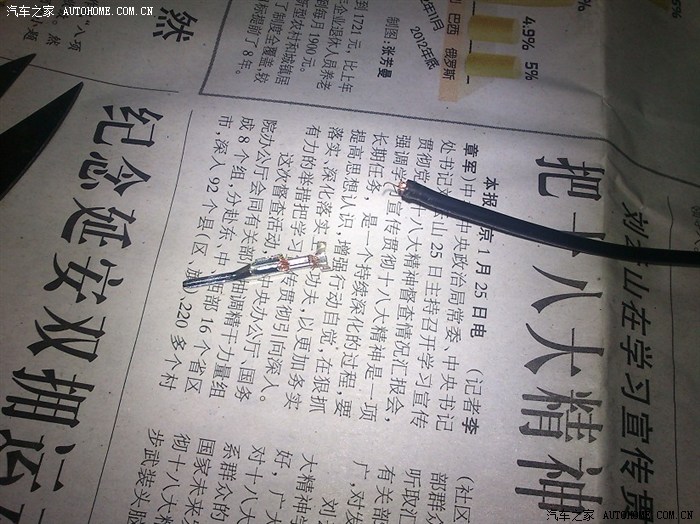 汽车之家 AUTOHOME.COM.CN
©AUTOHOME.COM.CN
4.9%
5%
巴西
俄罗斯
年11月
2012年底
制图：张芳曼
到1721元，比上年
年企业退休人员养老
到每月1900元。
新型农村和城镇居
了制度全覆盖，较
标提前了8年。
刘云山在学习宣传贯
把十八大精神
本报 京1月25日电 （记者李
章军）中 中央政治局常委、中央书记
处书记刘云山25日主持召开学习宣传
贯彻党 十八大精神督查情况汇报会，
强调学 宣传贯彻十八大精神是一项
长期任务，是一个持续深化的过程，要
提高思想认识，增强行动自觉，在狠抓
落实、深化落实 功夫，以更加务实
有力的举措把学习 传贯彻引向深入。
这次督查活动， 央办公厅、国务
院办公厅会同有关部 抽调精干力量组
成8个组，分赴东、中、西部16个省区
市，深入92个县（区、旗）、220多个村
（社区
部群众
听取汇
有关部
广，对发
刘
大精神学
好，广大
对十八大
系群众的
国家未来
彻十八大精
步武装头脑
然
纪念延安双拥运
汽车之家 AUTOHOME.COM.CN